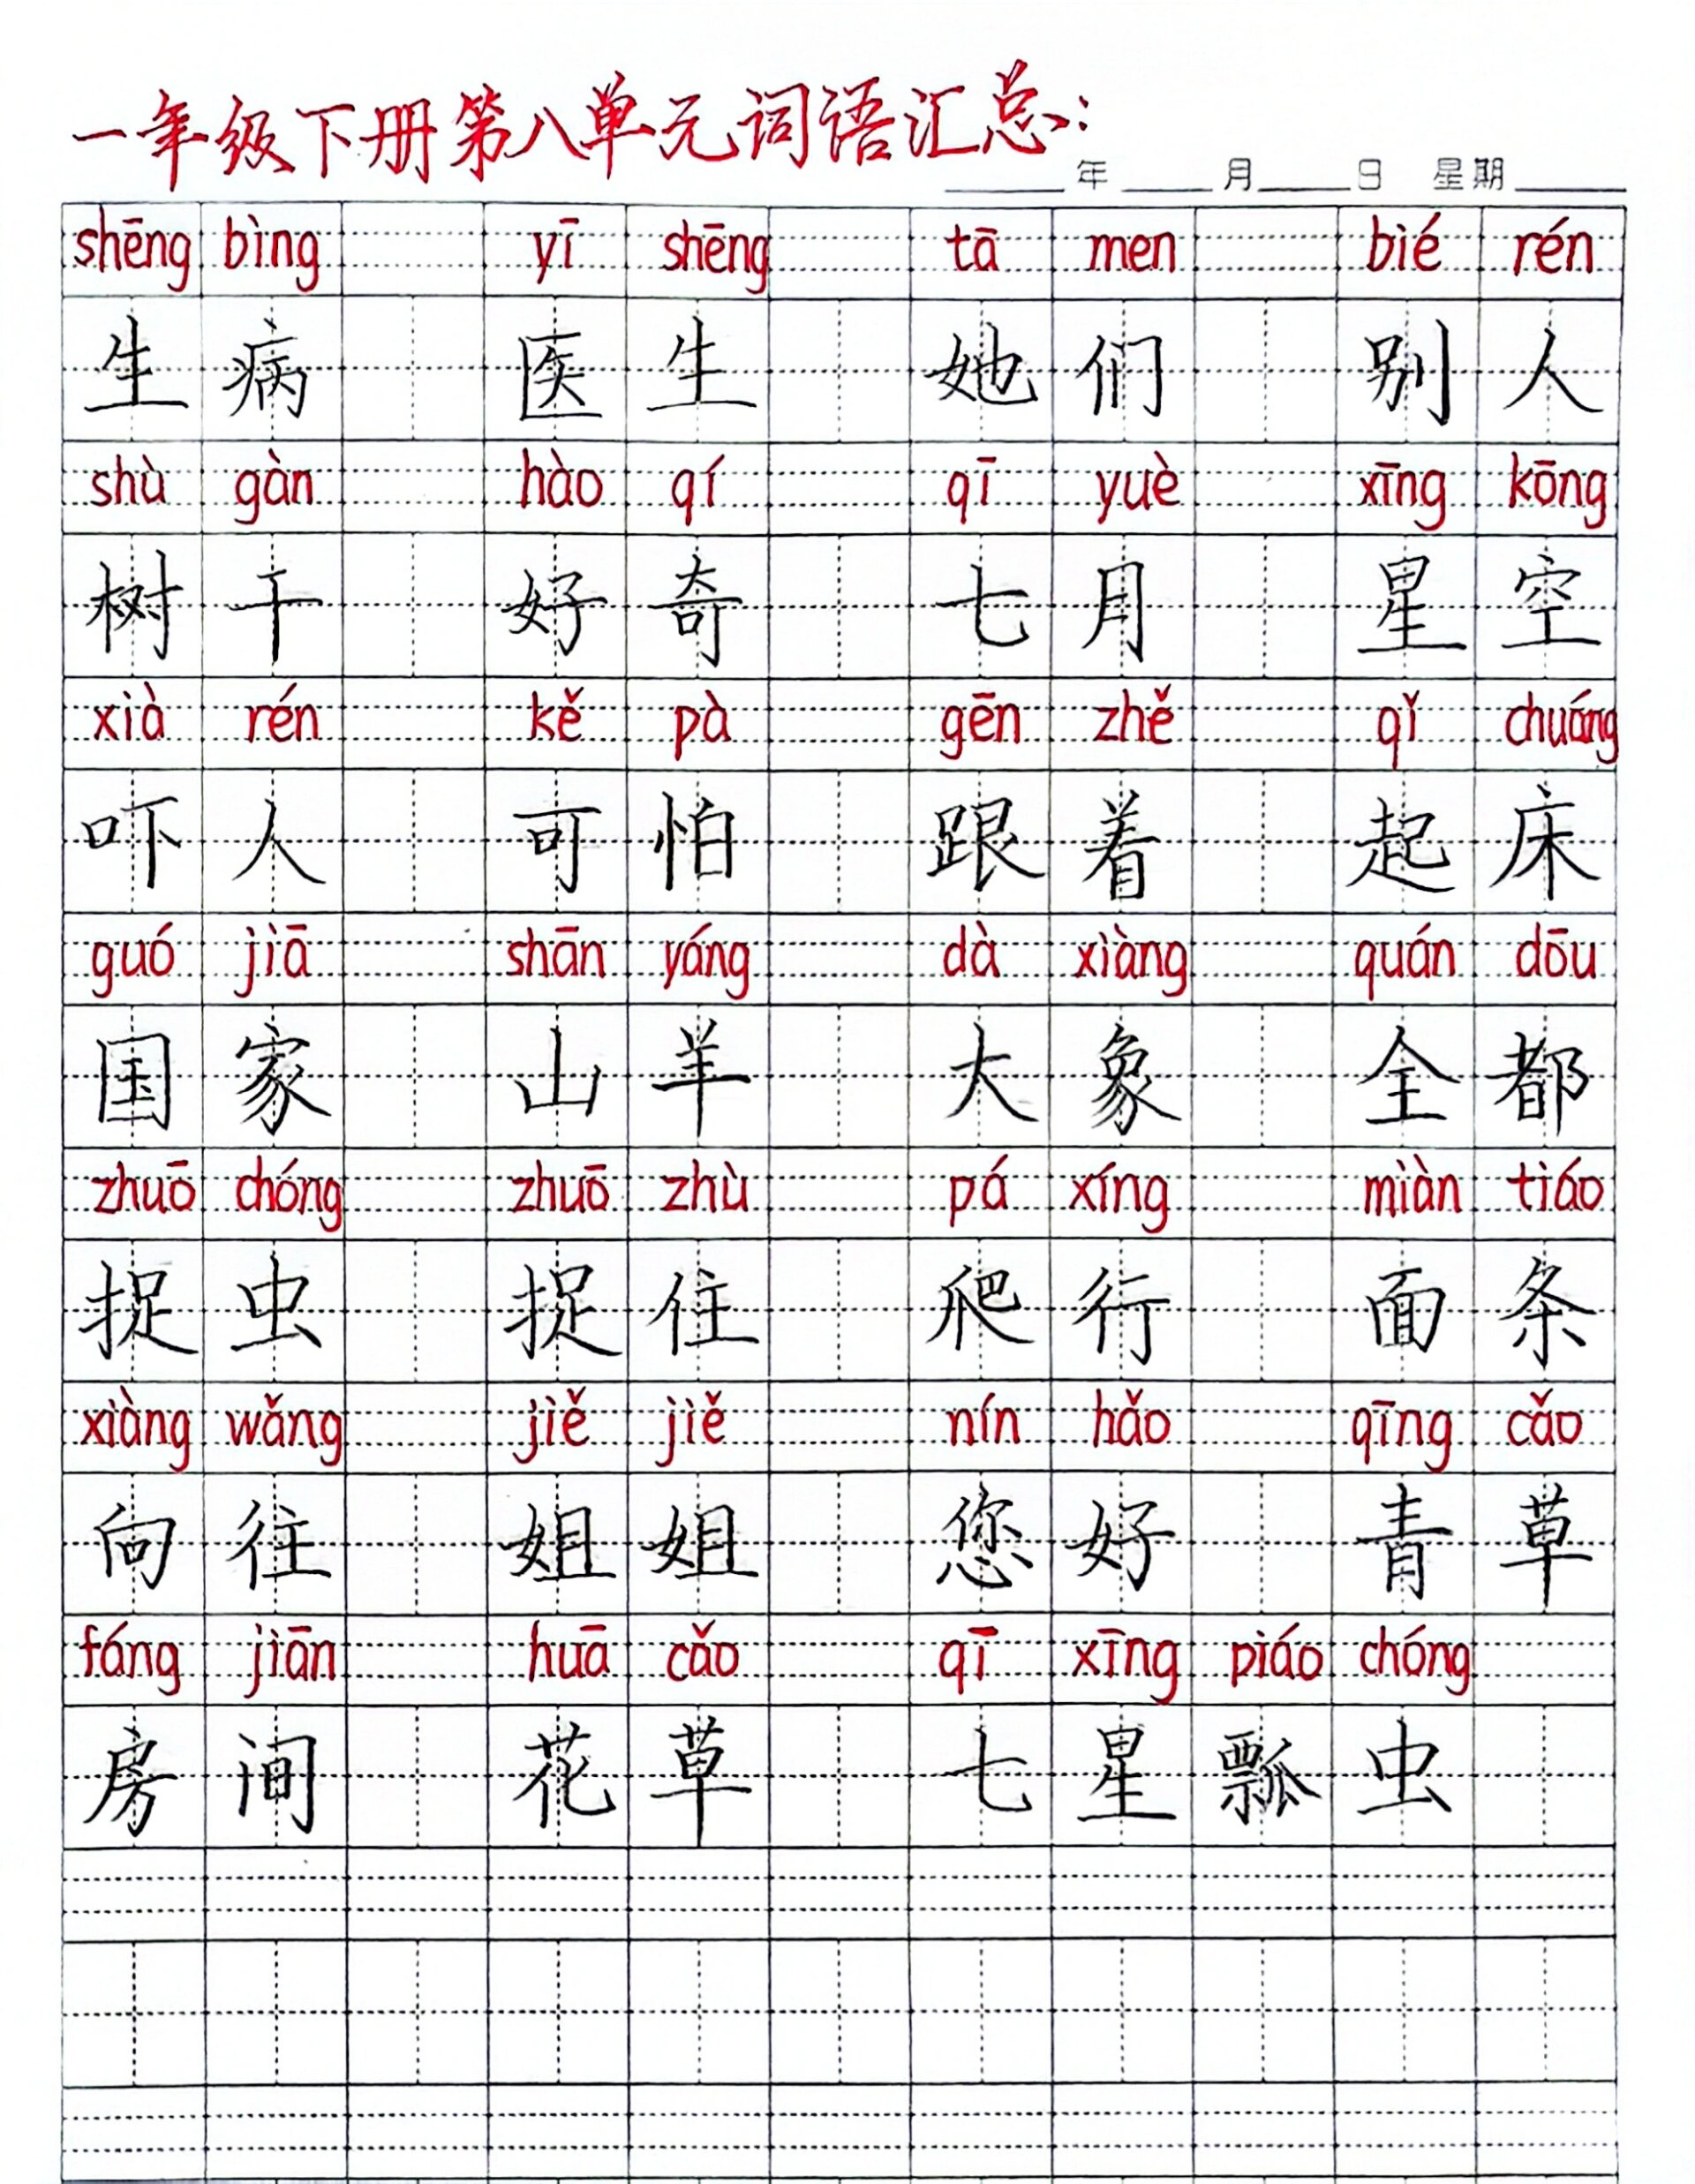 一年级下册第八单元词语汇总：
年 月 日 星期
shēng bìng yī shēng tā men bié rén
生病 医生 她们 别人
shù gàn hào qí qī yuè xīng kōng
树干 好奇 七月 星空
xià rén kě pà gēn zhě qǐ chuáng
吓人 可怕 跟着 起床
guó jiā shān yáng dà xiàng quán dōu
国家 山羊 大象 全都
zhuō chóng zhuō zhù pá xíng miàn tiáo
捉虫 捉住 爬行 面条
xiàng wǎng jiě jiě nín hǎo qīng cǎo
向往 姐姐 您好 青草
fáng jiān huā cǎo qī xīng piáo chóng
房间 花草 七星瓢虫